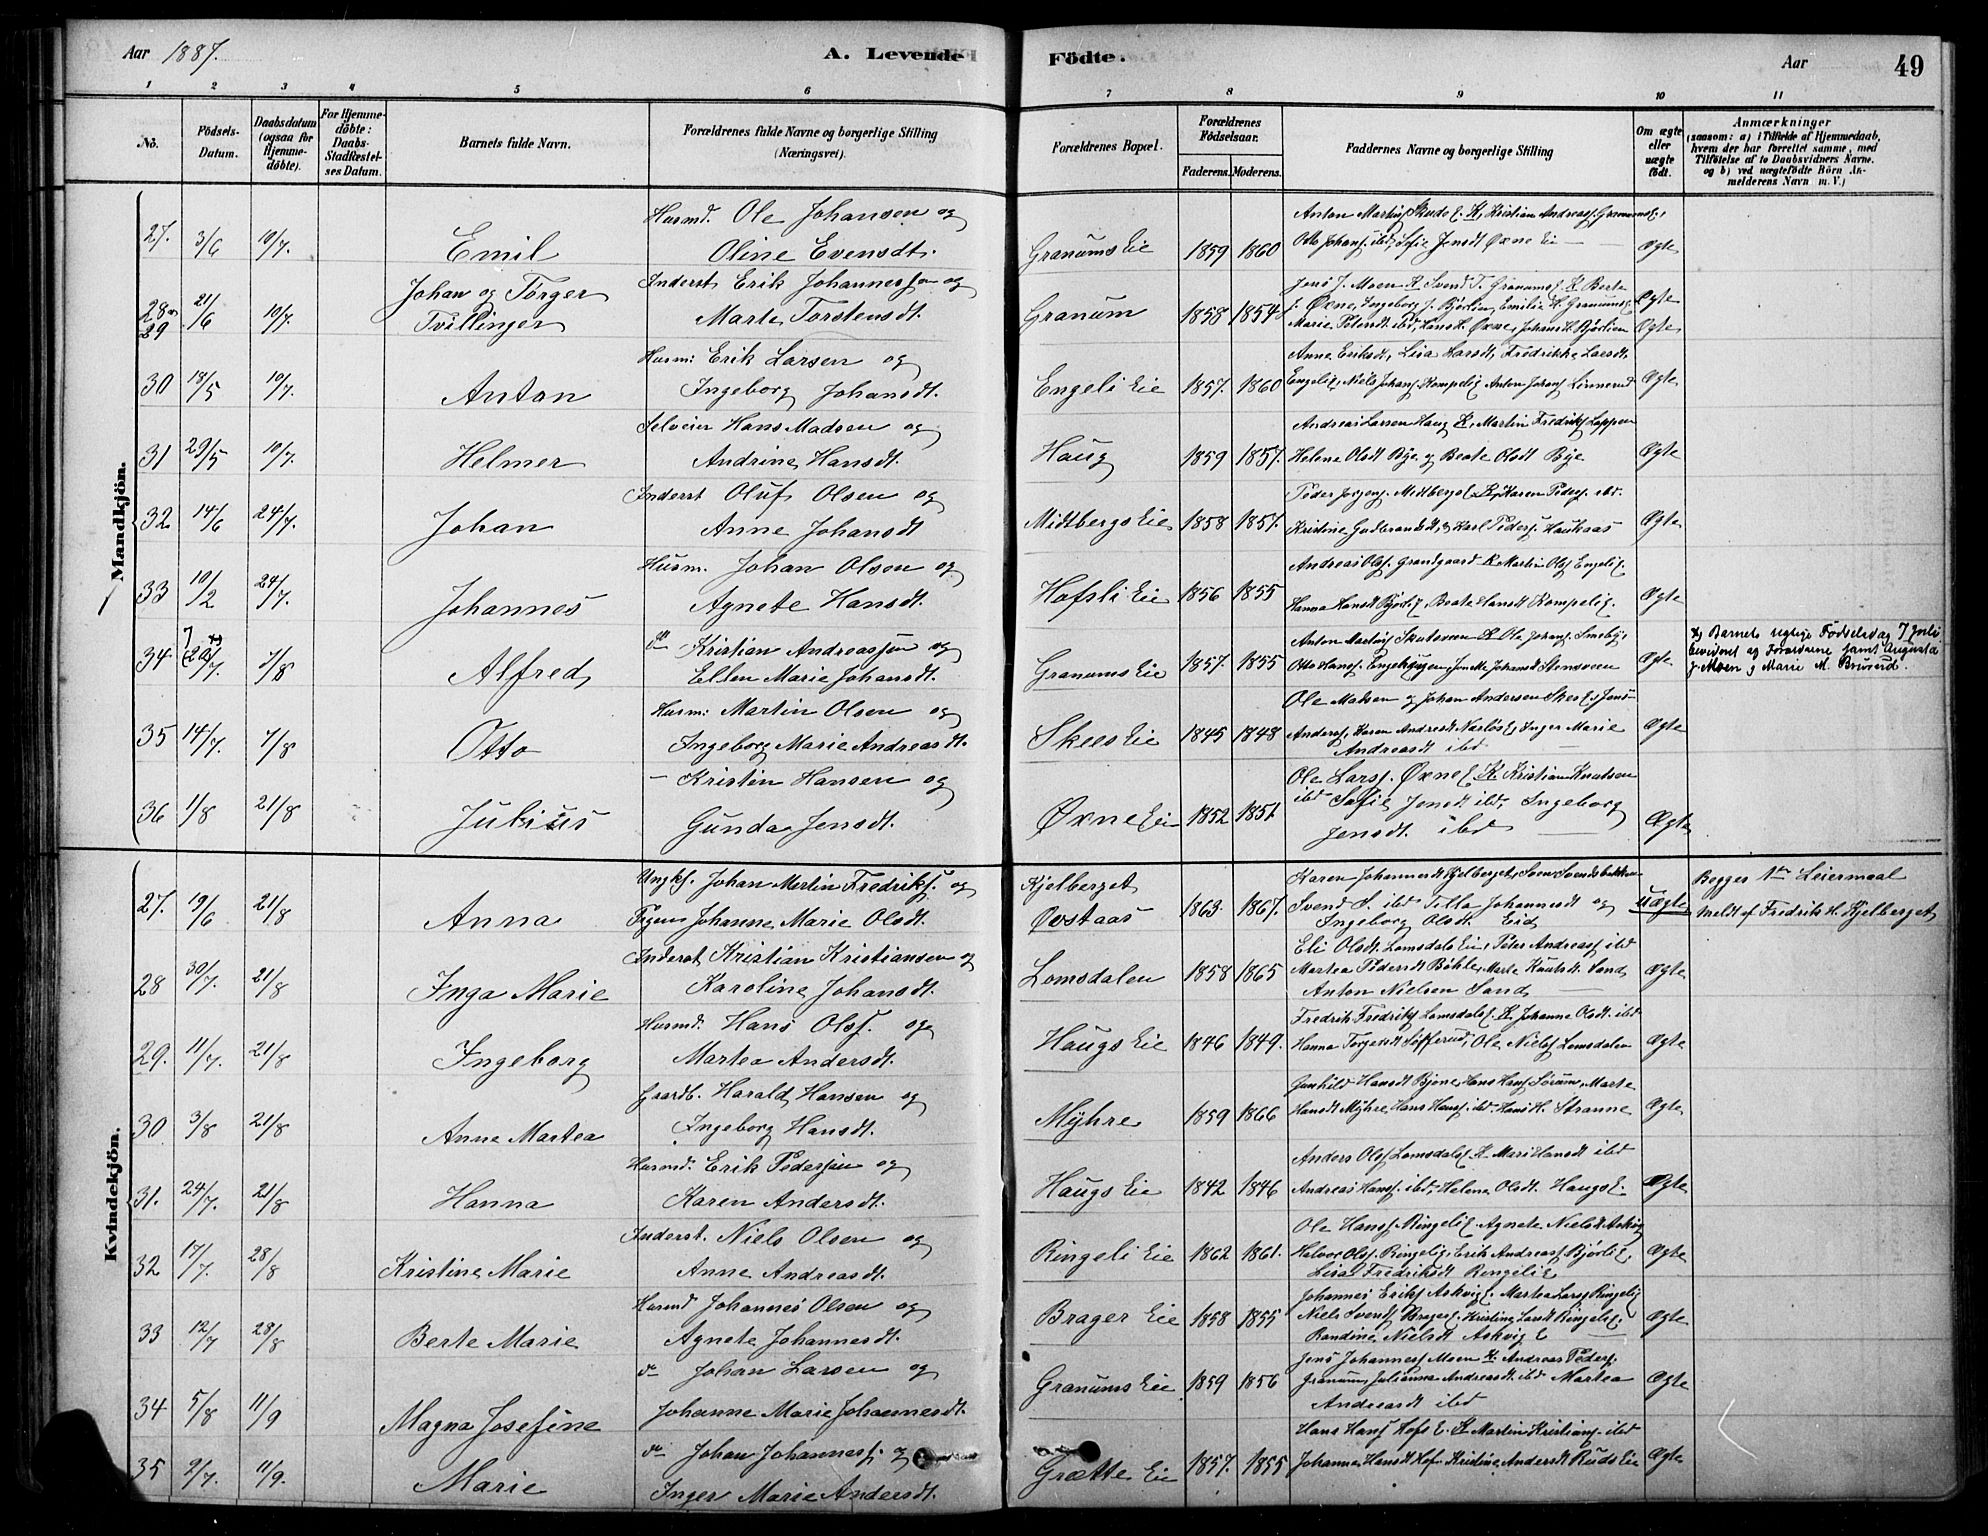 Aar 1887. A. Levende Födte. Aar 49
1 2 3 4 5 6 7 8 9 10 11
No. Födsels-Datum. Daabsdatum (ogsaa for Hjemme-döbte). For Hjemme-döbte: Daabs-Stadfæstel-ses Datum. Barnets fulde Navn. Forældrenes fulde Navne og borgerlige Stilling (Næringsvei). Forældrenes Bopæl. Forældrenes Födselsaar. Faderens. Moderens. Faddernes Navne og borgerlige Stilling Om ægte eller uægte födt. Anmærkninger (saasom: a) i Tilfælde af Hjemmedaab, hvem der har forrettet samme, med Tilföielse af to Daabsvidners Navne. og b) ved uægtefödte Börn An-melderens Navn m. V.)
Mandkjön.
Husmd. Ole Johansen og Anton Kristian Andreass.
27. 3/6 10/7. Emil Oline Evensdt. Granums Eie 1859 1860 Otto Johans. ibd, Sofie Jensdt Øxne Eie Ægte
Johan og Torger Inderst Erik Johannessen og Jens J. Moen K. Svend T. Granums. K. Berte
28 og 29 21/6 10/7. Tvillinger Marte Torstensdt. Granum 1858 1854 J. Øxne, Ingeborg J. Bjørlien, Emilie H. Granums Ægte
Marie Petersdt ibd, Hans L. Øxne, Johan H. Bjørlien Ægte
Husm: Erik Larsen og Anne Eriksdt, Lisa Larsdt, Fredrikke Larsdt
30 18/5 10/7. Anton Ingeborg Johansdt. Engeli Eie 1857. 1860 Engelie, Niels Johans. Anton Johans. Linnerud Ægte
Selveier Hans Madsen og Andreas Larsen Haug K, Martin Fredriks. Loppen
31 29/5 10/7. Helmer Andrine Hansdt. Haug 1859 1857. Helene Olsdt Bye og Beate Olsdt Bye Ægte
Inderst Oluf Olsen og Peder Jorgens. Midtbergs E. K, Karen Peders. ibd.
32 14/6 24/7. Johan Anne Johansdt Midtbergs Eie 1858 1857. Kristine Gudbrandsdt, og Karl Peders. Haukaas Ægte
Husm. Johan Olsen og Andreas Ols. Grandgaard K. Martin Ols. Engelie.
33 10/2 24/7. Johannes Agnete Hansdt. Hofsli Eie 1856 1855 Hanna Hansdt Bjørlie, Beate Hansdt Ægte
do Kristian Andreassen og Anton Skutsveen K. Ole Johans. x) Barnets rigtige Födselsdag 7 Juli
34 7/7 7/8 Alfred Ellen Marie Johansdt. Granums Eie 1857. 1855 Otto Hans. Johansdt Stensveen Ægte bevidnet af Forældrene samt Augusta J. Moen og Marie M. Bruserud.
Husm: Martin Olsen og Ole Madsen og Johan Andersen Skees E, Jens
35 14/7. 7/8 Otto Ingeborg Marie Andreasdt. Skees Eie 1845 1848 Anders. Karen Andreasdt, Inger Marie Ægte
Andreasdt ibd
— Kristen Hansen og Ole Lars. Øxne E. K. Kristian Knutsen
36 1/8 21/8 Julius Gunda Jensdt. Øxne Eie 1852 1851 ibd Sofie Jensdt ibd, Ingeborg Ægte
Jensdt. ibd
Kvindekjön.
Ungk. Johan Martin Fredriks. og Kjelberget Karen Johannesdt Kjelberget, Sven Svendsbakken Begges 1ste Leiermaal
27. 19/6 21/8 Anna Pigen Johanne Marie Olsdt. Ovstaas 1863. 1867. Svend S. ibd Johannesdt og Uægte Meldt af Fredrik H. Kjelberget
Ingeborg Olsdt. Eid
Inderst Kristian Kristiansen og Eli Olsdt. Lomsdals Eie, Peter Andreass. ibd
28 30/7. 21/8 Inga Marie Karoline Johansdt. Lomsdalen 1858 1865 Martea Pedersdt Bøhle, Marte Knutsdt. Sand Ægte
Anton Nielsen Sand
Husmd. Hans Ols. og Fredrik Fredriks. Lomsdals E. K. Johanne Olsdt. ibd
29. 11/7. 21/8 Ingeborg Martea Andersdt. Haugs Eie 1846 1849. Hanna Torgersdt Sofferud, Ole Niels. Lomsdalen Ægte
Gaardb. Harald Hansen og Gunhild Hansdt Bjone, Hans Hans. Sørum, Marte
30 3/8 21/8 Anne Martea Ingeborg Hansdt. Myhre 1859 1866 Hansdt Myhre, Hans Hans. ibd Hans H. Stranne Ægte
Husmd. Erik Pedersen og Anders Ols. Lomsdals E. K Mari Hansdt ibd
31. 24/7. 21/8 Hanna Karen Andersdt. Haugs Eie 1842 1846 Andreas Hans. ibd, Helene Olsdt. Haugs E. Ægte
Inderst. Niels Olsen og Ole Hans. Ringeli E. Agnete Nielsdt Askvig
32 17/7. 28/8 Kristine Marie Anne Andreasdt. Ringeli Eie 1862 1861. Halvor Ols. Ringelie, Erik Andreass. Bjørlie, Ægte
Lisa Fredriksdt Ringelie
Husmd Johannes Olsen og Johannes Eriks. Askvig E. Martea Lars. Ringelie
33 12/7 28/8 Berte Marie Agnete Johannesdt. Brager Eie 1858 1855 Niels Svends. Brager E. Kristine Larsdt Ringelie. Ægte
Randine Nielsdt Askvig E
do Johan Larsen og Jens Johannes. Moen K. Andreas Peders.
34 5/8 11/9 Magna Josefine Johanne Marie Johannesdt. Granums Eie 1859 1856 Granum, Julianna Andreasdt. ibd Martea Ægte
Andreasdt ibd
do Johan Johanness. og Hans Hans. Hofs E. K Martin Kristians. ibd
35 2/7. 11/9. Marie Inger Marie Andersdt. Grætte Eie 1857. 1855 Johanne Hansdt Hof. Kristine Andersdt Ruds Eie Ægte